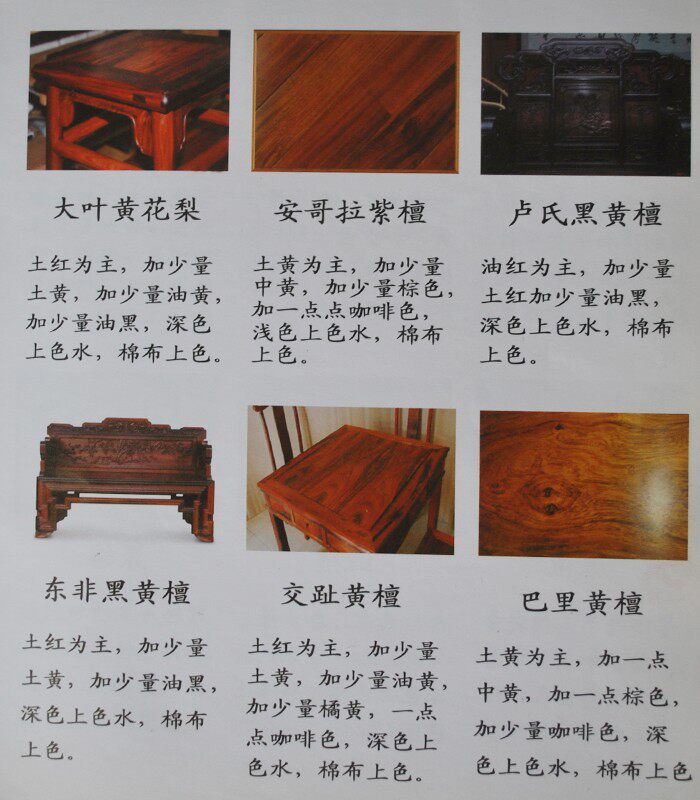 大叶黄花梨
土红为主，加少量
土黄，加少量油黄，
加少量油黑，深色
上色水，棉布上色。
安哥拉紫檀
土黄为主，加少量
中黄，加少量棕色，
加一点点咖啡色，
浅色上色水，棉布
上色。
卢氏黑黄檀
油红为主，加少量
土红加少量油黑，
深色上色水，棉布
上色。
东非黑黄檀
土红为主，加少量
土黄，加少量油黑，
深色上色水，棉布
上色。
交趾黄檀
土红为主，加少量
土黄，加少量油黄，
加少量橘黄，一点
点咖啡色，深色上
色水，棉布上色。
巴里黄檀
土黄为主，加一点
中黄，加一点棕色，
加少量咖啡色，深
色上色水，棉布上色